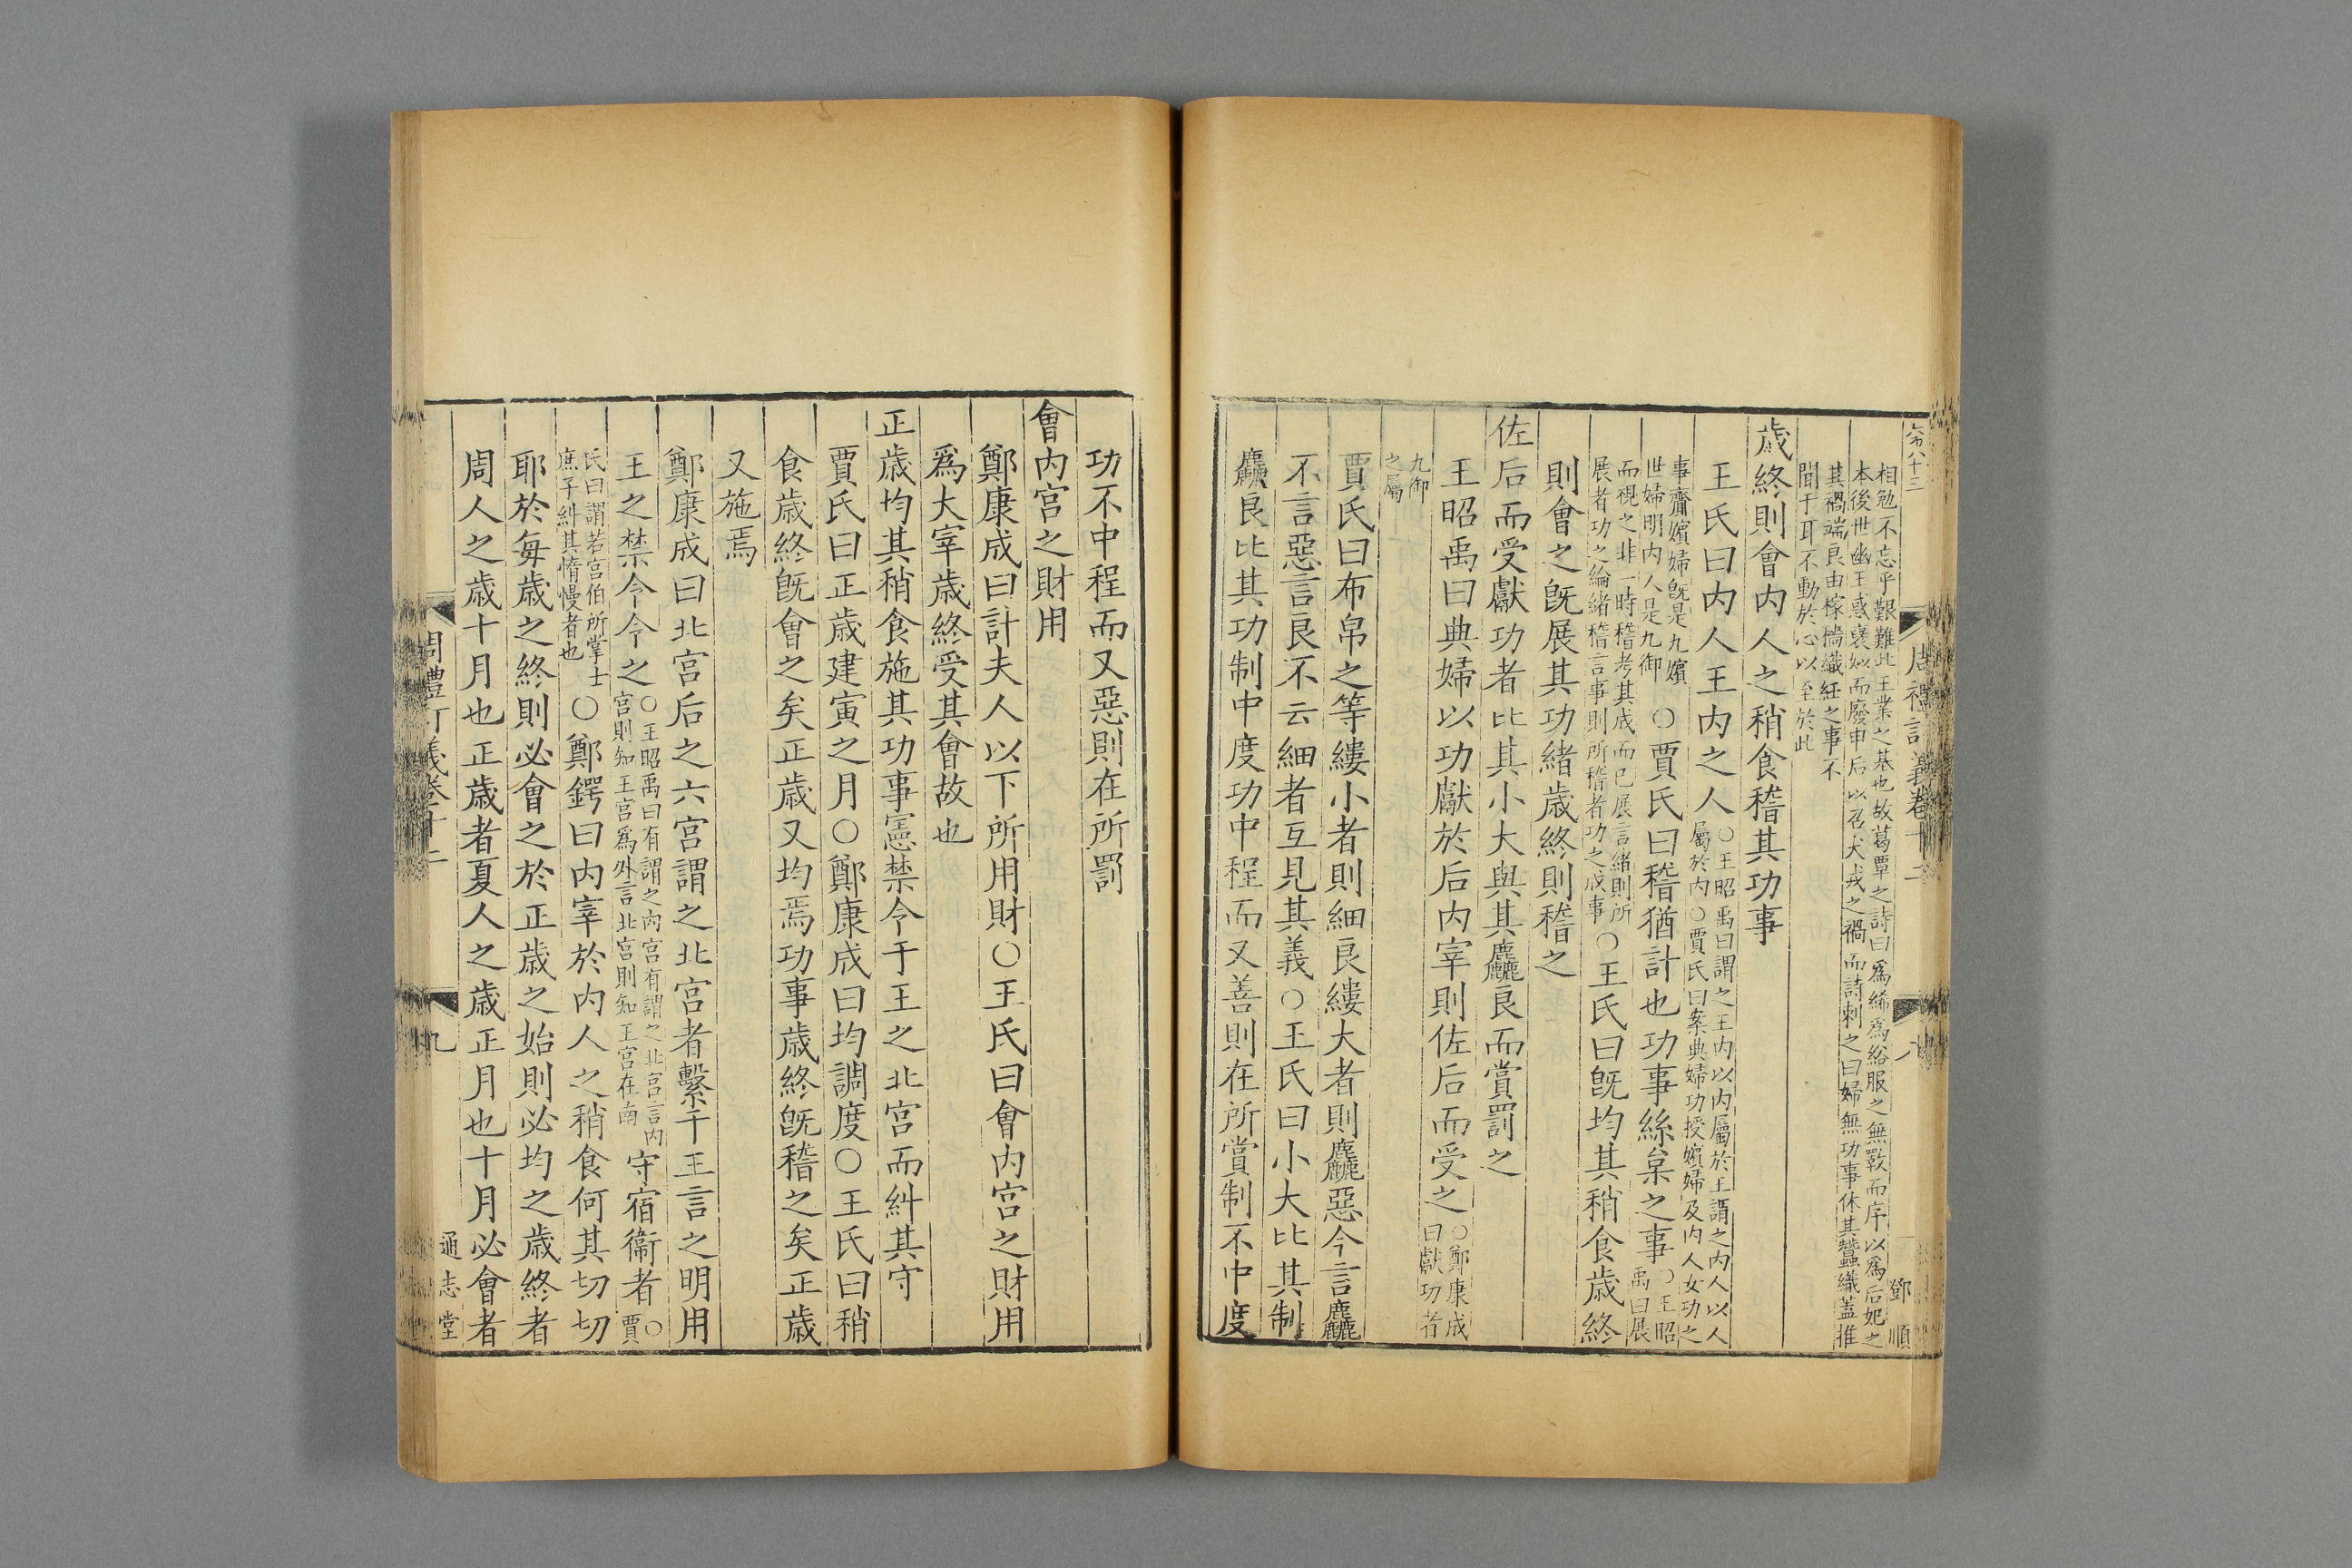 相勉不忘乎艱難此王業之基也故葛覃之詩曰爲絺爲綌服之無斁而序以爲后妃之
本後世幽王惑褒姒而廢申后以召犬戎之禍而詩刺之曰婦無功事休其蠶織蓋推
其禍端良由棎牆織紝之事不
聞于耳不動於心以至於此
歲終則會內人之稍食稽其功事
王氏曰內人王內之人○王昭禹曰謂之王內以內屬於王謂之內人以人
屬於內○賈氏曰案典婦功授嬪婦及內人女功之
事齎嬪婦旣是九嬪
世婦明內人是九御○賈氏曰稽猶計也功事絲枲之事○王昭
禹曰展
而視之非一時稽考其成而已展言緒則所
展者功之綸緒稽言事則所稽者功之成事○王氏曰旣均其稍食歲終
則會之旣展其功緒歲終則稽之
佐后而受獻功者比其小大與其麤良而賞罰之
王昭禹曰典婦以功獻於后內宰則佐后而受之○鄭康成
曰獻功者
九御
之屬
賈氏曰布帛之等縷小者則細良縷大者則麤惡今言麤
不言惡言良不云細者互見其義○王氏曰小大比其制
麤良比其功制中度功中程而又善則在所賞制不中度
功不中程而又惡則在所罰
會內宮之財用
鄭康成曰計夫人以下所用財○王氏曰會內宮之財用
爲大宰歲終受其會故也
正歲均其稍食施其功事憲禁令于王之北宮而糾其守
賈氏曰正歲建寅之月○鄭康成曰均調度○王氏曰稍
食歲終旣會之矣正歲又均焉功事歲終旣稽之矣正歲
又施焉
鄭康成曰北宮后之六宮謂之北宮者繫于王言之明用
王之禁令令之○王昭禹曰有謂之內宮有謂之北宮言內
宮則知王宮爲外言北宮則知王宮在南守宿衞者○
賈
氏曰謂若宮伯所掌士
庶子糾其惰慢者也○鄭鍔曰內宰於內人之稍食何其切切
耶於每歲之終則必會之於正歲之始則必均之歲終者
周人之歲十月也正歲者夏人之歲正月也十月必會者
周禮訂義卷十二
八
鄧順
九
通志堂